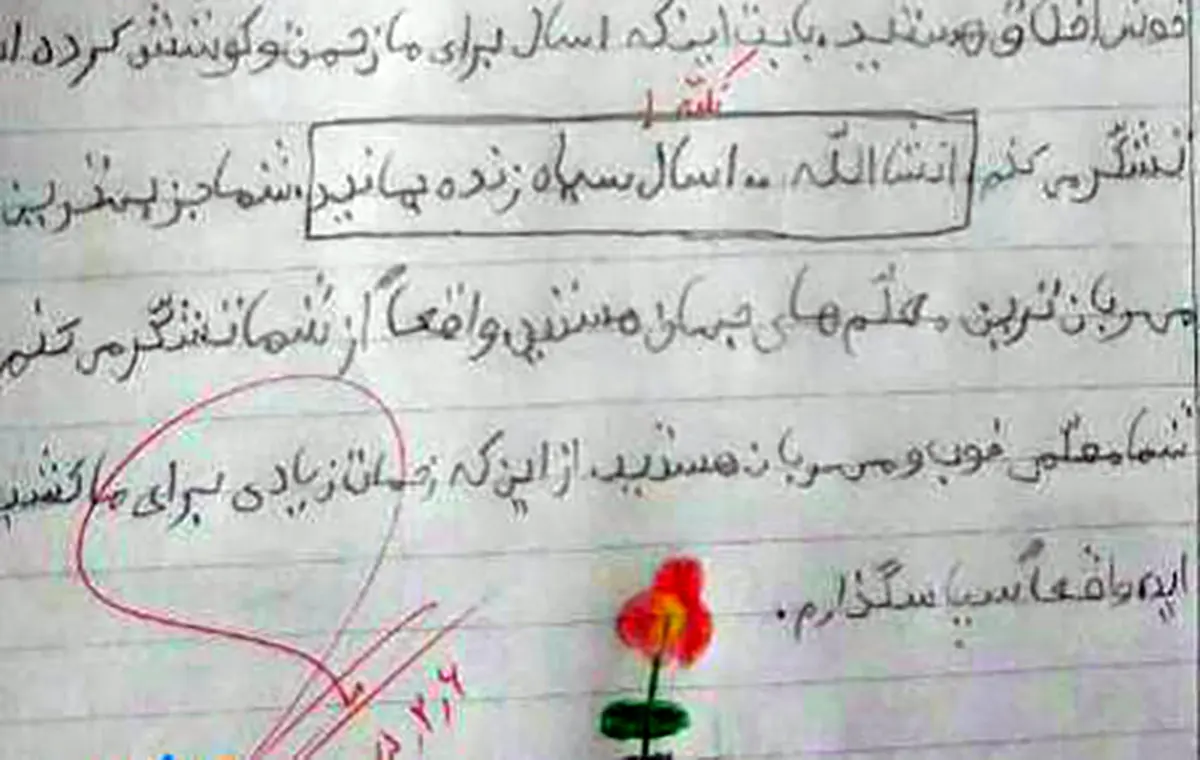 خوش اخلاق هستید. بابت این که امسال برای ما زحمت و کوشش کرده ا
تشکّر می کنم انشاالله .. اسال سیاه زنده بمانید. شما جز بهترین
مهربان ترین معلّم های جهان هستین واقعاً از شما تشکّر می کنم
شما معلّمی خوب و مهربان هستید. از این که زحمات زیادی برای ما کشید
اید، واقعاً سپاسگذارم.